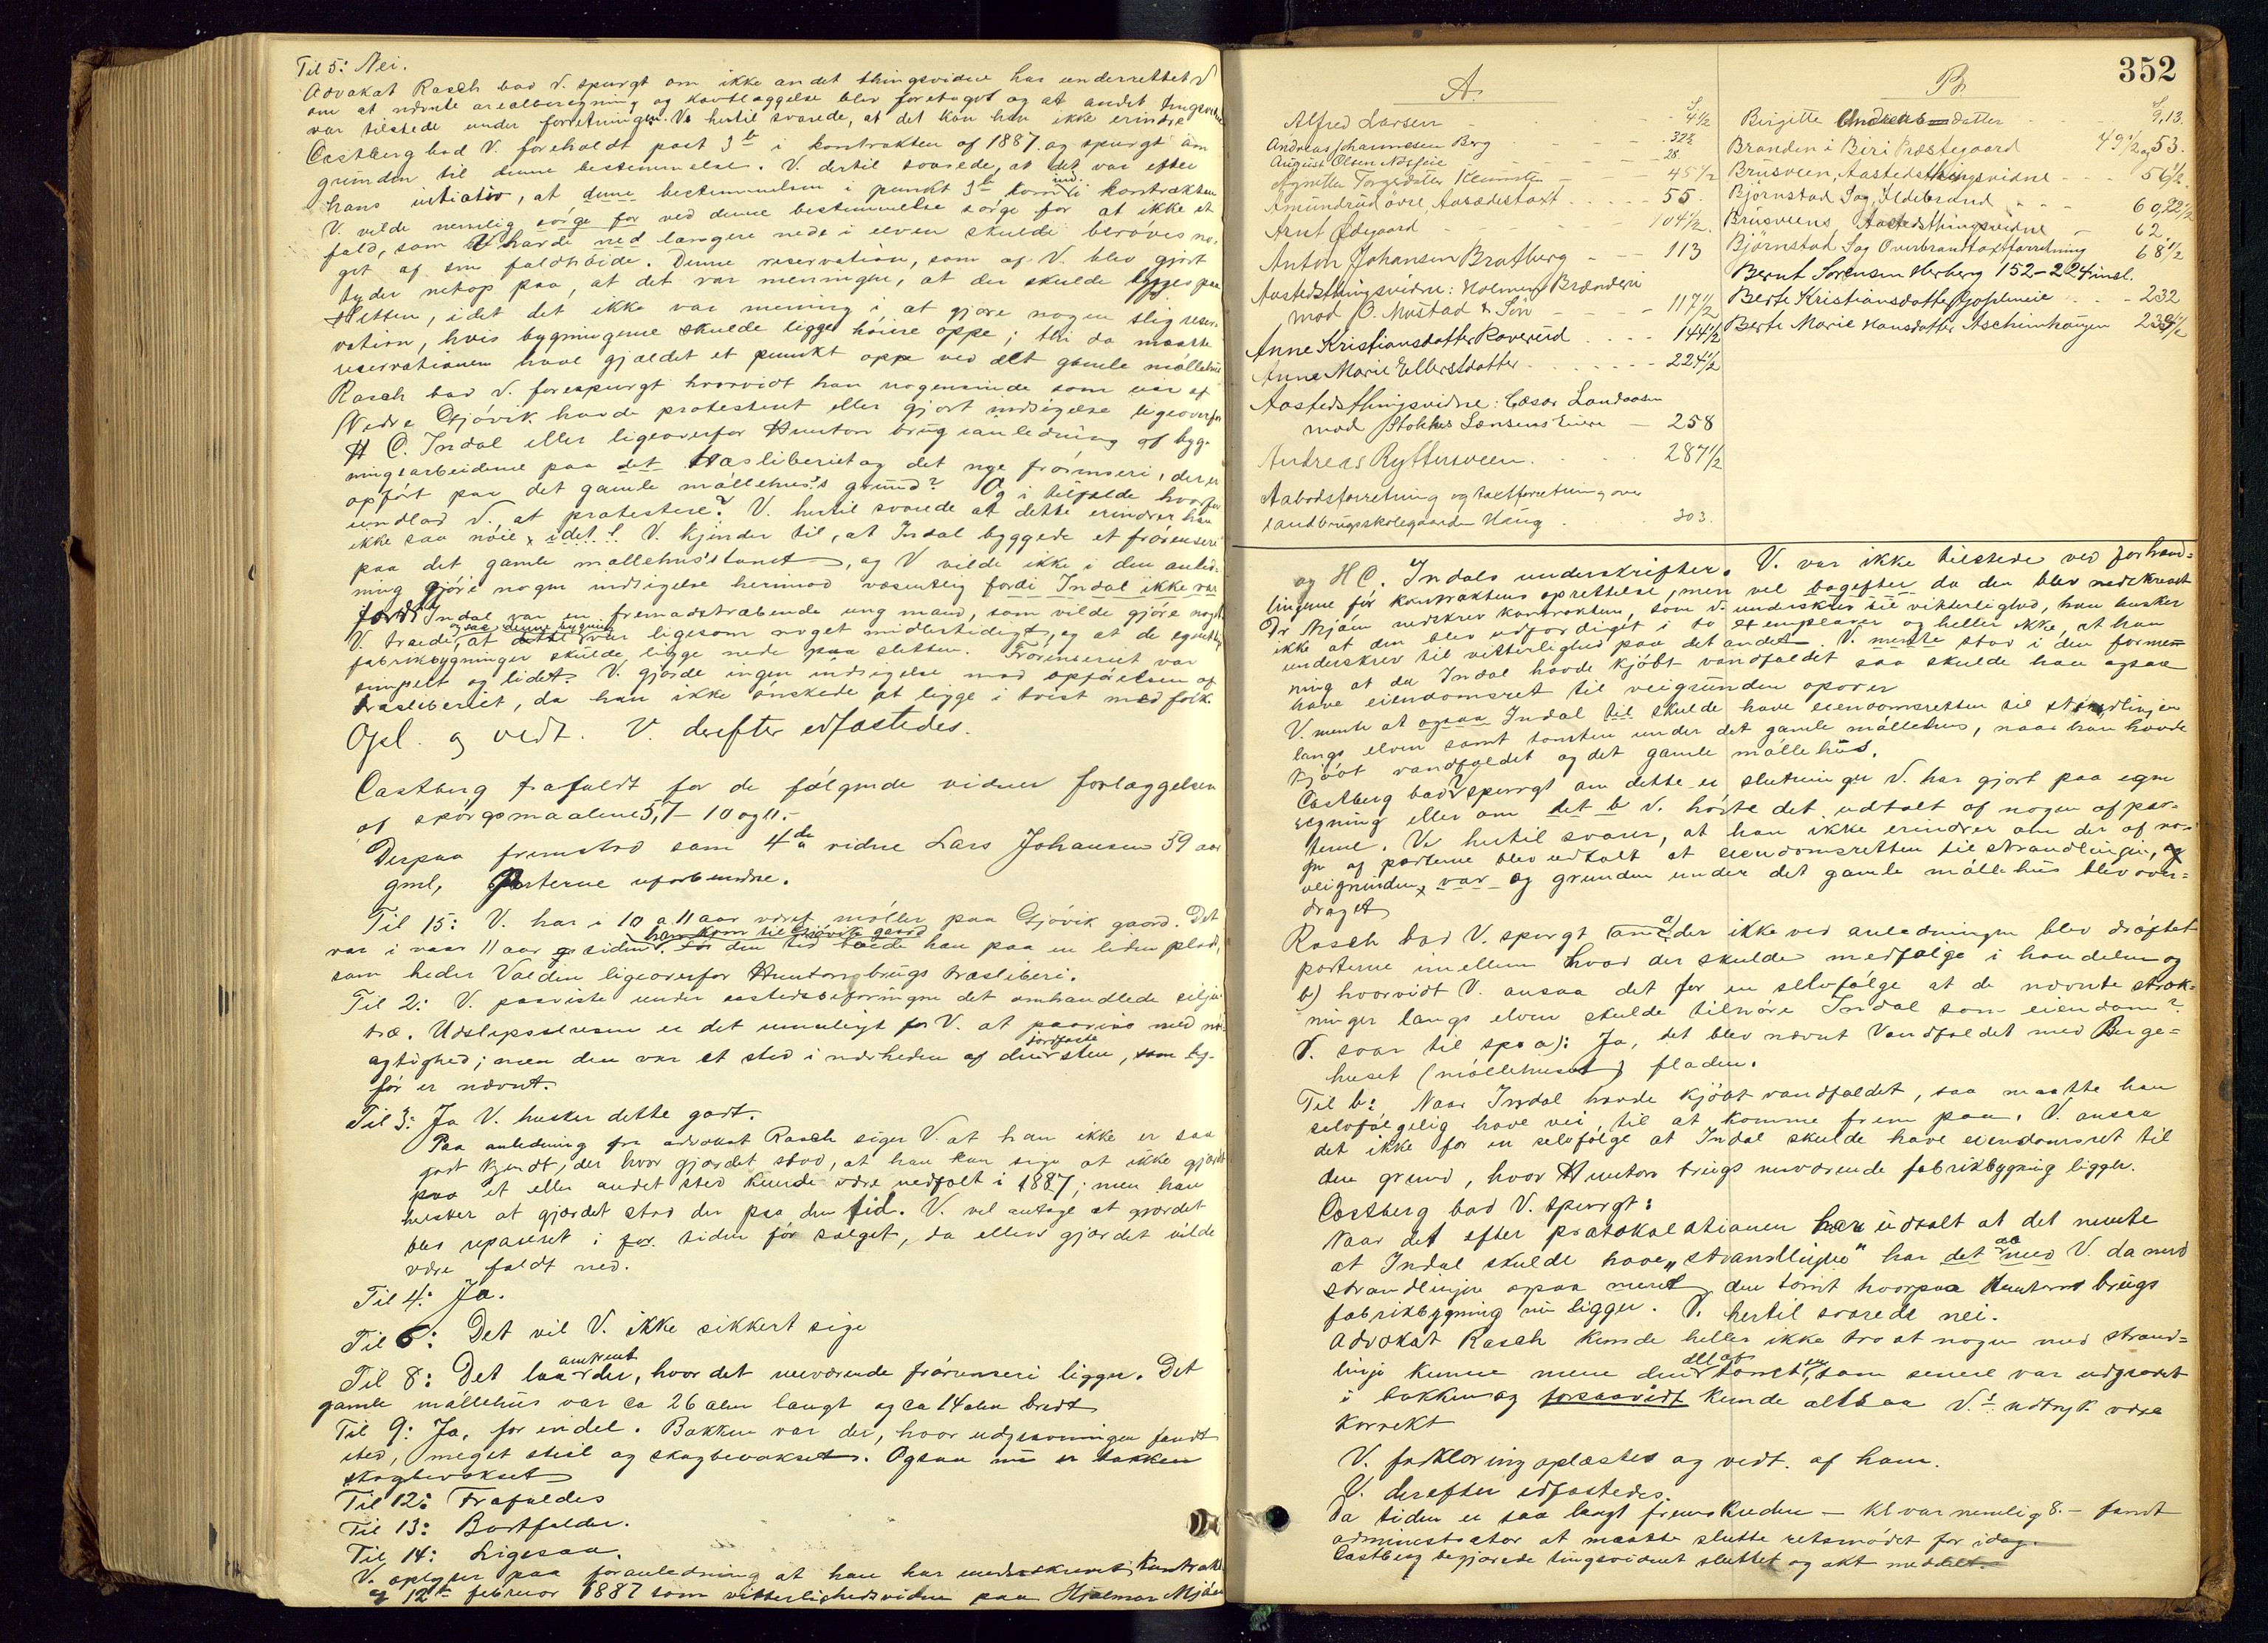 Til 5: Nei.
Advokat Rasch bad V. spurgt om ikke andet thingsvidne har underrettet V
om at nævnte arealberegning og kartlæggelse blev foretaget og at andet tingsvidne
var tilstede under forretningen. V. hertil svarede, at det kan han ikke erindre
Castberg bad V. foreholdt post 3 b i kontrakten af 1887 og spurgt om
grunden til denne bestemmelse. V. dertil svarede, at det var efter
hans initiativ, at denne bestemmelsen i punkt 3 b kom ind i kontrakten
V. vilde nemlig sørge for ved denne bestemmelse sørge for at ikke et
fald, som V havde ned længere nede i elven skulde berøves no-
get af sin faldhøide. Denne reservation, som af V. blev gjort
tyder netop paa, at det var meningen, at der skulde bygges paa
sletten, idet det ikke var mening i at gjøre nogen slig reser-
vation, hvis bygningerne skulde ligge høiere oppe; thi da maatte
reservationen have gjældet et punkt oppe ved det gamle møllehus
Rasch bad V. forespurgt hvorvidt han nogensinde som eier af
Nedre Gjøvik havde protesteret eller gjort indsigelse ligeoverfor
H C. Indal eller ligeoverfor Hunton brug i anledning af byg-
ningsarbeiderne paa det træsliberiet og det nye frørenseri, der er
opført paa det gamle møllehus's grund? Og i tilfælde hvorfor
undlod V. at protestere? V. hertil svarede at dette erindrer han
ikke saa nøie, idet !. V. kjender til, at Indal byggede et frørenseri
paa det gamle møllehus's tomt, og V vilde ikke i den anled-
ning gjøre nogen indsigelse herimod væsentlig fordi Indal ikke var
fordi Indal var en fremadstræbende ung mand, som vilde gjøre noget
V. troede, at dette var ligesom noget midlertidigt, og at de egentlige
og saa denne bygning
fabrikbygninger skulde ligge nede paa sletten. Frørenseriet var
simpelt og lidet. V. gjorde ingen indsigelse mod opførelsen af
træsliberiet, da han ikke ønskede at ligge i tvist med folk.
Opl. og vedt. V. derefter edfæstedes.
Castberg frafaldt for de følgende vidner forlæggelsen
af spørgsmaalene 5, 7- 10 og 11.-
Derpaa fremstod som 4de vidne Lars Johansen 59 aar
gml, parterne uforbundne.
Til 15: V. har i 10 a 11 aar været møller paa Gjøvik gaard. Det
var i vaar 11 aar siden han kom til Gjøvik gaard. Før den tid boede han paa en liden plads,
som heder Valdin ligeoverfor Huntons brugs træsliberi.
Til 2: V. paaviste under aastedsbefaringen det omhandlede silju-
træ. Udslipsosen er det umuligt for V. at paavise med nø-
agtighed; men den var et sted i nærheden af den jordfaste sten, som tid-
før er nævnt.
Til 3: Ja V. husker dette godt.
Paa anledning fra advokat Rasch siger V. at han ikke er saa
godt kjendt, der hvor gjærdet stod, at han kan sige at ikke gjærdet
paa et eller andet sted kunde være nedfalt i 1887; men han
husker at gjærdet stod der paa den tid. V. vel antage at gjærdet
blev repareret i for tiden før salget, da ellers gjærdet vilde
være faldt ned.
Til 4: Ja.
Til 6: Det vil V. ikke sikkert sige
Til 8: Det laa omtrent der, hvor det nuværende frørenseri ligger. Det
gamle møllehus var ca 26 alen langt og ca 14 alen bredt
Til 9: Ja, for endel. Bakken var der, hvor udgravningen fandt
sted, meget steil og skogbevokset. Ogsaa nu er bakken
skogbevokset
Til 12: Frafaldes
Til 13: Bortfalder.
Til 14: Ligesaa.
V. oplyser paa foranledning at han har underskrevet kontrakt
af 12te februar 1887 som vitterlighedsvidne paa Hjalmar Mjøen
352
A.
Alfred Larsen - - - - S. 4 1/2
Andreas Johannesen Berg - - - 32 1/2
August Olsen - - - 28
Agnethe Torgersdatter - - - 45 1/2
Amundrud øvre, Aasædestaxt . . . . . 55.
Arnt Ødegaard - - - - 104 1/2
Anton Johansen Bratberg - - - 113
Aastedsthingsvidne: Holmens Brænderi
mod O. Mustad & Søn - - - - 117 1/2
Anne Kristiansdatter Roverud . . . . 144 1/2
Anne Marie Ellersdatter . . . . . . . 224 1/2
Aastedsthingsvidne: Cæsar Landaasen
mod Stokkes Lænsens Eiere - 258
Andreas Ryttersveen. . . . 287 1/2
Aabodsforretning og taxtforretning over
Landbrugsskolegaarden Haug . . 303.
B.
Birgitte Andreasdatter - - - S. 9, 13.
Branden i Biri Præstegaard 49 1/2 og 53.
Brusveen, Aastedsthingsvidne - - - 56 1/2.
Bjørnstad Sag, Ildebrand - - - 60, 22 1/2
Brusveens Aastedsthingsvidne - 62.
Bjørnstad Sag Overbrandtaxtforretning 68 1/2
Bernt Sørensen Herberg 152-224 incl.
Berte Kristiansdatter . . . - 232
Berte Marie Hansdatter Aschimhaugen 239 1/2
og H C. Indals underskrifter. V. var ikke tilstede ved forhand-
lingerne før kontraktens oprettelse, men vel bagefter da den blev nedskrevet
Dr Mjøen nedskrev kontrakten, som V. underskrev til vitterlighed, han husker
ikke at den blev udfærdiget i to exemplarer og heller ikke, at han
underskrev til vitterlighed paa det andet. V. mente stod i den formen-
ning at da Indal havde kjøbt vandfaldet saa skulde han ogsaa
have eiendomsret til veigrunden opover
V. mente at ogsaa Indal til skulde have eiendomsretten til strandlinjen
langs elven samt tomten under det gamle møllehus, naar han havde
kjøbt vandfaldet og det gamle møllehus.
Castberg bad V spurgt om dette er slutninger V. har gjort paa egen
regning eller om det b V. hørte det udtalt af nogen af par-
terne. V. hertil svarer, at han ikke erindrer om der af no-
gen af parterne blev udtalt at eiendomsretten til strandlinjen, og
veigrunden, var og grunden under det gamle møllehus blev over-
draget
Rasch bad V. spurgt om a) der ikke ved anledningen blev drøftet
parterne imellem hvad der skulde medfølge i handelen og
b) hvorvidt V. ansaa det for en selvfølge at de nævnte stræk-
ninger langs elven skulde tilhøre Indal som eiendom?
V. svar til sp. a): Ja, det blev nævnt Vandfaldet med Berge-
huset (møllehuset) fladen.
Til b: Naar Indal havde kjøbt vandfaldet, saa maatte han
selvfølgelig have vei, til at komme frem paa. V. ansaa
det ikke for en selvfølge at Indal skulde have eiendomsret til
den grund, hvor Hunton brugs nuværende fabrikbygning ligger.
Castberg bad V. spurgt:
Naar det efter protokolationen har udtalt at det mente
at Indal skulde have "strandlinjen" har det med V. da med
strandlinjen ogsaa ment den tomt hvorpaa Huntons brugs
fabrikbygning nu ligger. V. hertil svarede nei.
Advokat Rasch kunde heller ikke tro at nogen med strand-
linje kunne mene den del af tomten, som senere var udgravet
i bakken og forsaavidt kunde altsaa V.s udtryk være
korrekt
V. forklaring oplæstes og vedt. af ham.
V. derefter edfæstedes.
Da tiden er saa langt fremskreden - kl var nemlig 8. - fandt
administrator at maatte slutte retsmødet for idag.
Castberg begjærede tingsvidnet sluttet og akt meddelt.